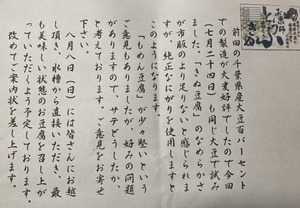 前回の千葉県産大豆百パーセント
での製造が大変好評でしたので今回
(七月二十四日)も同じ大豆で試み
ました。「きぬ豆腐」のなめらかさ
が市販のより足りないと感じられま
すが、純正なにがりを使用しますと
このようになります。
「もめん豆腐」が少々堅いという
ご意見もありましたが、好みの問題
がありますので、サテどうしたか、
と考えております。ご意見をお寄せ
下さい。
八月八日(日)には皆さんにお越
し頂き、水槽から直接いただき、最
も美味しい状態のお豆腐を召し上が
っていただくよう予定しております。
改めてご案内状を差し上げます。